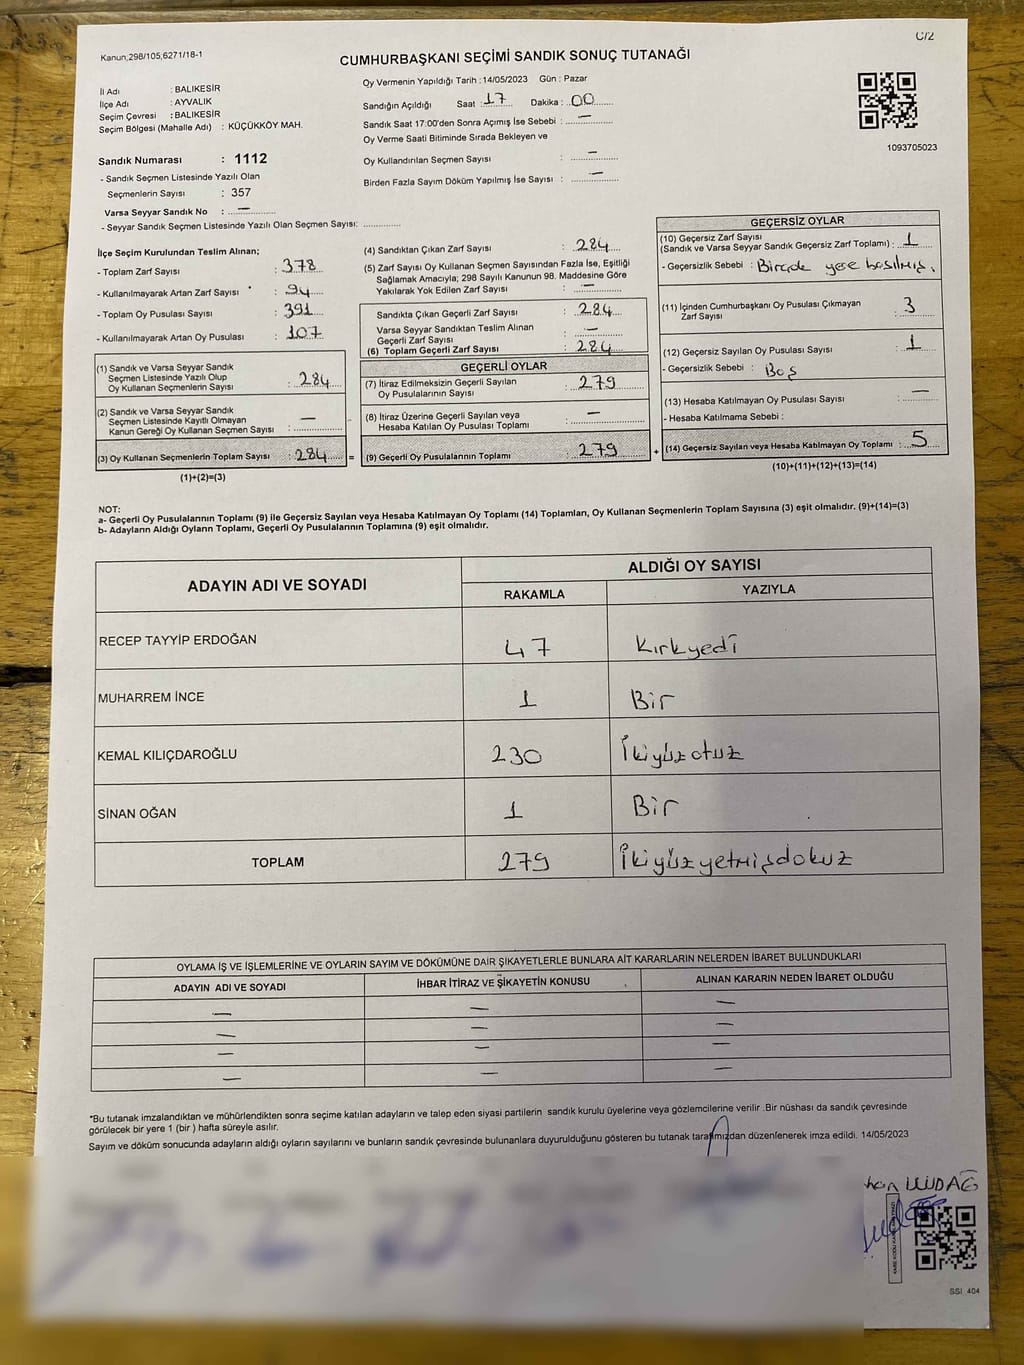 C/2
Kanun;298/105;6271/18-1
CUMHURBAŞKANI SEÇİMİ SANDIK SONUÇ TUTANAĞI
İl Adı : BALIKESİR
İlçe Adı : AYVALIK
Seçim Çevresi : BALIKESİR
Seçim Bölgesi (Mahalle Adı) : KÜÇÜKKÖY MAH.
Sandık Numarası : 1112
- Sandık Seçmen Listesinde Yazılı Olan
Seçmenlerin Sayısı : 357
Varsa Seyyar Sandık No : —
- Seyyar Sandık Seçmen Listesinde Yazılı Olan Seçmen Sayısı:
Oy Vermenin Yapıldığı Tarih : 14/05/2023 Gün : Pazar
Sandığın Açıldığı Saat : 17 Dakika : 00
Sandık Saat 17:00'den Sonra Açımış İse Sebebi : —
Oy Verme Saati Bitiminde Sırada Bekleyen ve
Oy Kullandırılan Seçmen Sayısı : —
Birden Fazla Sayım Döküm Yapılmış İse Sayısı : —
1093705023
İlçe Seçim Kurulundan Teslim Alınan;
- Toplam Zarf Sayısı : 378
- Kullanılmayarak Artan Zarf Sayısı : 94
- Toplam Oy Pusulası Sayısı : 391
- Kullanılmayarak Artan Oy Pusulası : 107
(1) Sandık ve Varsa Seyyar Sandık
Seçmen Listesinde Yazılı Olup
Oy Kullanan Seçmenlerin Sayısı : 284
(2) Sandık ve Varsa Seyyar Sandık
Seçmen Listesinde Kayıtlı Olmayan
Kanun Gereği Oy Kullanan Seçmen Sayısı : —
(3) Oy Kullanan Seçmenlerin Toplam Sayısı : 284 =
(1)+(2)=(3)
(4) Sandıktan Çıkan Zarf Sayısı : 284
(5) Zarf Sayısı Oy Kullanan Seçmen Sayısından Fazla İse, Eşitliği
Sağlamak Amacıyla; 298 Sayılı Kanunun 98. Maddesine Göre
Yakılarak Yok Edilen Zarf Sayısı : —
Sandıkta Çıkan Geçerli Zarf Sayısı : 284
Varsa Seyyar Sandıktan Teslim Alınan
Geçerli Zarf Sayısı : —
(6) Toplam Geçerli Zarf Sayısı : 284
GEÇERLİ OYLAR
(7) İtiraz Edilmeksizin Geçerli Sayılan
Oy Pusulalarının Sayısı : 279
(8) İtiraz Üzerine Geçerli Sayılan veya
Hesaba Katılan Oy Pusulası Toplamı : —
(9) Geçerli Oy Pusulalarının Toplamı : 279 +
GEÇERSİZ OYLAR
(10) Geçersiz Zarf Sayısı
(Sandık ve Varsa Seyyar Sandık Geçersiz Zarf Toplamı) : 1
- Geçersizlik Sebebi : Birçok yere basılmış.
(11) İçinden Cumhurbaşkanı Oy Pusulası Çıkmayan
Zarf Sayısı : 3
(12) Geçersiz Sayılan Oy Pusulası Sayısı : 1
- Geçersizlik Sebebi : Boş
(13) Hesaba Katılmayan Oy Pusulası Sayısı : —
- Hesaba Katılmama Sebebi :
(14) Geçersiz Sayılan veya Hesaba Katılmayan Oy Toplamı : 5
(10)+(11)+(12)+(13)=(14)
NOT:
a- Geçerli Oy Pusulalarının Toplamı (9) ile Geçersiz Sayılan veya Hesaba Katılmayan Oy Toplamı (14) Toplamları, Oy Kullanan Seçmenlerin Toplam Sayısına (3) eşit olmalıdır. (9)+(14)=(3)
b- Adayların Aldığı Oyların Toplamı, Geçerli Oy Pusulalarının Toplamına (9) eşit olmalıdır.
ADAYIN ADI VE SOYADI ALDIĞI OY SAYISI
RAKAMLA YAZIYLA
RECEP TAYYİP ERDOĞAN 47 Kırkyedi
MUHARREM İNCE 1 Bir
KEMAL KILIÇDAROĞLU 230 İkiyüzotuz
SİNAN OĞAN 1 Bir
TOPLAM 279 İkiyüzyetmişdokuz
OYLAMA İŞ VE İŞLEMLERİNE VE OYLARIN SAYIM VE DÖKÜMÜNE DAİR ŞİKAYETLERLE BUNLARA AİT KARARLARIN NELERDEN İBARET BULUNDUKLARI
ADAYIN ADI VE SOYADI İHBAR İTİRAZ VE ŞİKAYETİN KONUSU ALINAN KARARIN NEDEN İBARET OLDUĞU
— — —
— — —
— — —
— — —
*Bu tutanak imzalandıktan ve mühürlendikten sonra seçime katılan adayların ve talep eden siyasi partilerin sandık kurulu üyelerine veya gözlemcilerine verilir .Bir nüshası da sandık çevresinde
görülecek bir yere 1 (bir ) hafta süreyle asılır.
Sayım ve döküm sonucunda adayların aldığı oyların sayılarını ve bunların sandık çevresinde bulunanlara duyurulduğunu gösteren bu tutanak tarafımızdan düzenlenerek imza edildi. 14/05/2023
ULUDAĞ
SSI_404